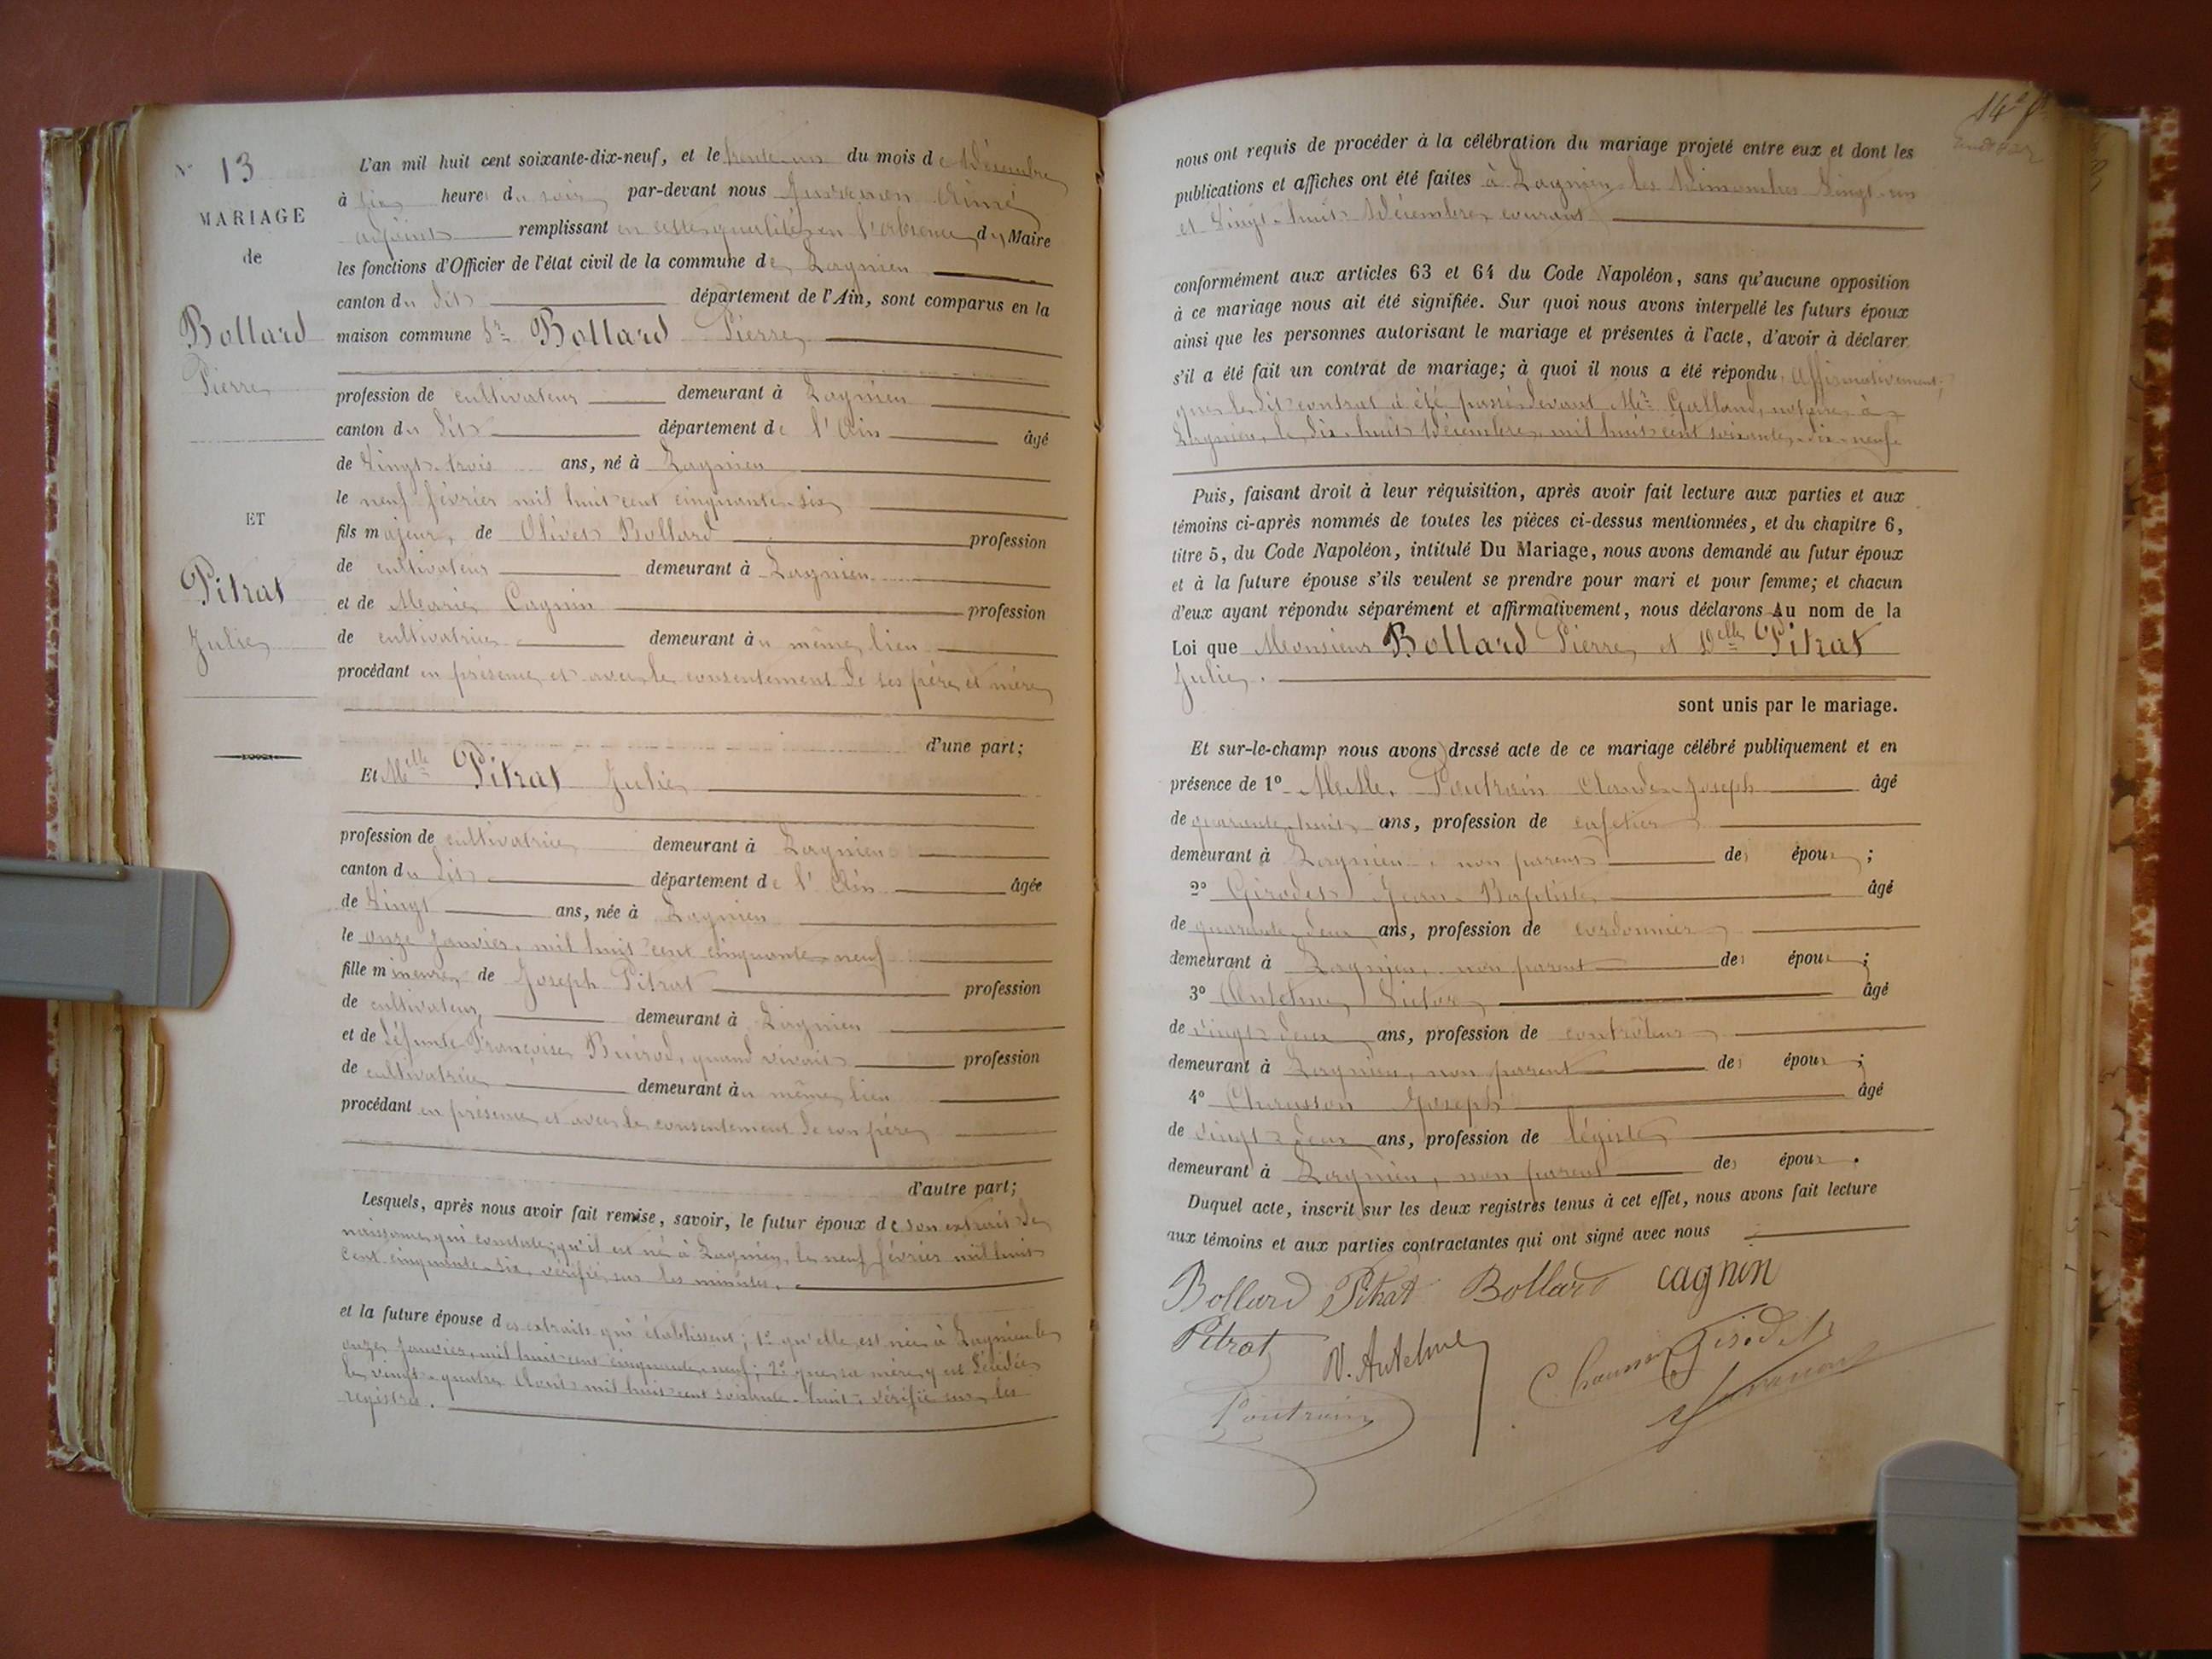 N° 13
MARIAGE
de
Bollard
Pierre
ET
Pitrat
Julie
L'an mil huit cent soixante-dix-neuf, et le trente-un du mois de Décembre
à six heures du soir par-devant nous Aimé
adjoint remplissant en cette qualité en l'absence du Maire
les fonctions d'Officier de l'état civil de la commune de Lagnieu
canton du dit département de l'Ain, sont comparus en la
maison commune Sr Bollard Pierre
profession de cultivateur demeurant à Lagnieu
canton du dit département de l'Ain âgé
de Vingt-trois ans, né à Lagnieu
le neuf février mil huit cent cinquante-six
fils majeur, de Olivet Bollard profession
de cultivateur demeurant à Lagnieu
et de Marie Cagnin profession
de cultivatrice demeurant au même lieu
procédant en présence et avec le consentement de ses père et mère
d'une part;
Et Melle Pitrat Julie
profession de cultivatrice demeurant à Lagnieu
canton du dit département de l'Ain âgée
de Vingt ans, née à Lagnieu
le onze Janvier, mil huit cent cinquante-neuf
fille mineure, de Joseph Pitrat profession
de cultivateur, demeurant à Lagnieu
et de défunte Françoise Buirod, quand vivait profession
de cultivatrice demeurant au même lieu
procédant en présence et avec le consentement de son père
d'autre part;
Lesquels, après nous avoir fait remise, savoir, le futur époux de son extrait de
naissance qui constate, qu'il est né à Lagnieu, le neuf février mil huit
cent cinquante-six, vérifié sur les minutes.
et la future épouse des extraits qui établissent; 1° qu'elle est née à Lagnieu le
onze Janvier, mil huit cent cinquante-neuf; 2° que sa mère y est décédée
le vingt-quatre Août mil huit cent soixante-huit, vérifié sur les
registres.
14e
nous ont requis de procéder à la célébration du mariage projeté entre eux et dont les
publications et affiches ont été faites à Lagnieu les Dimanches Vingt-un
et Vingt-huit Décembre courant
conformément aux articles 63 et 64 du Code Napoléon, sans qu'aucune opposition
à ce mariage nous ait été signifiée. Sur quoi nous avons interpellé les futurs époux
ainsi que les personnes autorisant le mariage et présentes à l'acte, d'avoir à déclarer
s'il a été fait un contrat de mariage; à quoi il nous a été répondu Affirmativement;
que le dit contrat a été passé devant Me Galland, notaire à
Lagnieu, le dix-huit Décembre, mil huit cent soixante-dix-neuf.
Puis, faisant droit à leur réquisition, après avoir fait lecture aux parties et aux
témoins ci-après nommés de toutes les pièces ci-dessus mentionnées, et du chapitre 6,
titre 5, du Code Napoléon, intitulé Du Mariage, nous avons demandé au futur époux
et à la future épouse s'ils veulent se prendre pour mari et pour femme; et chacun
d'eux ayant répondu séparément et affirmativement, nous déclarons Au nom de la
Loi que Monsieur Bollard Pierre, et Delle Pitrat
Julie.
sont unis par le mariage.
Et sur-le-champ nous avons dressé acte de ce mariage célébré publiquement et en
présence de 1° M.M. Poutrain Claude-Joseph âgé
de quarante-huit ans, profession de cafetier
demeurant à Lagnieu, non parent des époux;
2° Girodet Jean-Baptiste âgé
de quarante-deux ans, profession de cordonnier
demeurant à Lagnieu, non parent des époux;
3° Antelme, Victor âgé
de vingt-deux ans, profession de contrôleur
demeurant à Lagnieu, non parent des époux;
4° Chausson Joseph âgé
de vingt-deux ans, profession de légiste
demeurant à Lagnieu, non parent des époux.
Duquel acte, inscrit sur les deux registres tenus à cet effet, nous avons fait lecture
aux témoins et aux parties contractantes qui ont signé avec nous
Bollard Pitrat Bollard cagnin
Pitrat V. Antelme Chausson Girodet
Poutrain